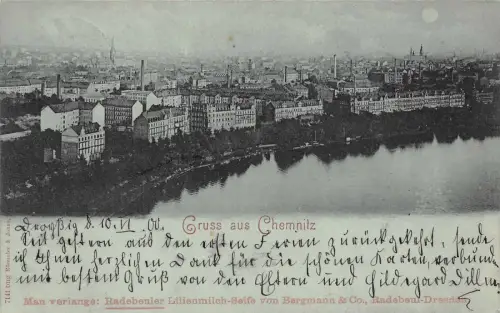 Gruss aus Chemnitz
Seit gestern aus den ersten Ferien zurückgekehrt, sende
ich Ihnen herzlichen Dank für die schönen Karten, verbunden
mit bestem Gruß von den Eltern und Hildegard
Man verlange: Radebeuler Lilienmilch-Seife von Bergmann & Co., Radebeul-Dresden